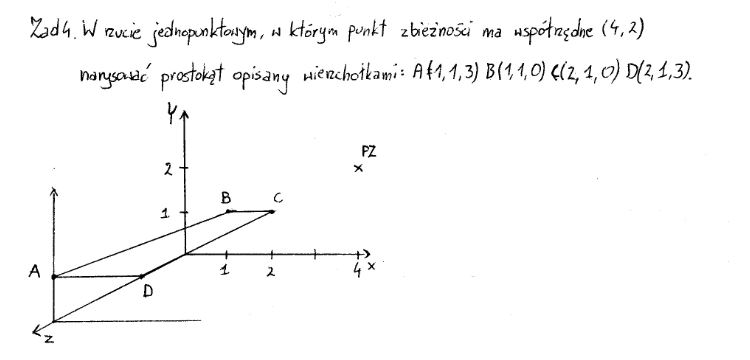 Zad 4. W rzucie jednopunktowym, w którym punkt zbieżności ma współrzędne (4,2)
narysować prostokąt opisany wierzchołkami: A(1,1,3) B(1,1,0) C(2,1,0) D(2,1,3).
Y
PZ
2
B C
1
1 2 4 x
A
D
z